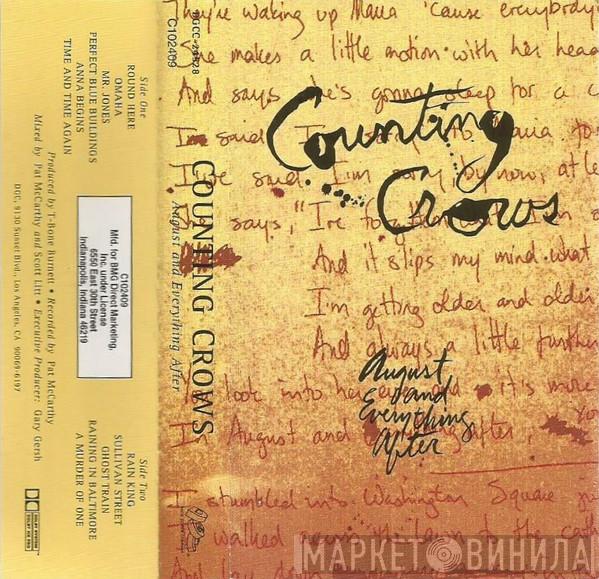 DGCC-24528
C102409
Side One
ROUND HERE
OMAHA
MR. JONES
PERFECT BLUE BUILDINGS
ANNA BEGINS
TIME AND TIME AGAIN
C102409
Mfd. for BMG Direct Marketing,
Inc. under License
6550 East 30th Street
Indianapolis, Indiana 46219
Side Two
RAIN KING
SULLIVAN STREET
GHOST TRAIN
RAINING IN BALTIMORE
A MURDER OF ONE
Produced by T-Bone Burnett • Recorded by Pat McCarthy
Mixed by Pat McCarthy and Scott Litt • Executive Producer: Gary Gersh
DGC, 9130 Sunset Blvd., Los Angeles, CA 90069-6197
DOLBY SYSTEM
COUNTING CROWS
August and Everything After
They're waking up Maria 'cause everybody
makes a little motion with her head
And says she's gonna sleep for a
I said I'm Maria
I've said I'm sorry by now, at le
She says, "I've
And it slips my mind what
I'm getting older and older
And always a little further
look into her it's more
In August and after, You
I stumbled into Washington Square
walked across the lawn to the cath
And lay down
Counting
Crows
August
and
Everything
After
МАРКЕТ ВИНИЛА